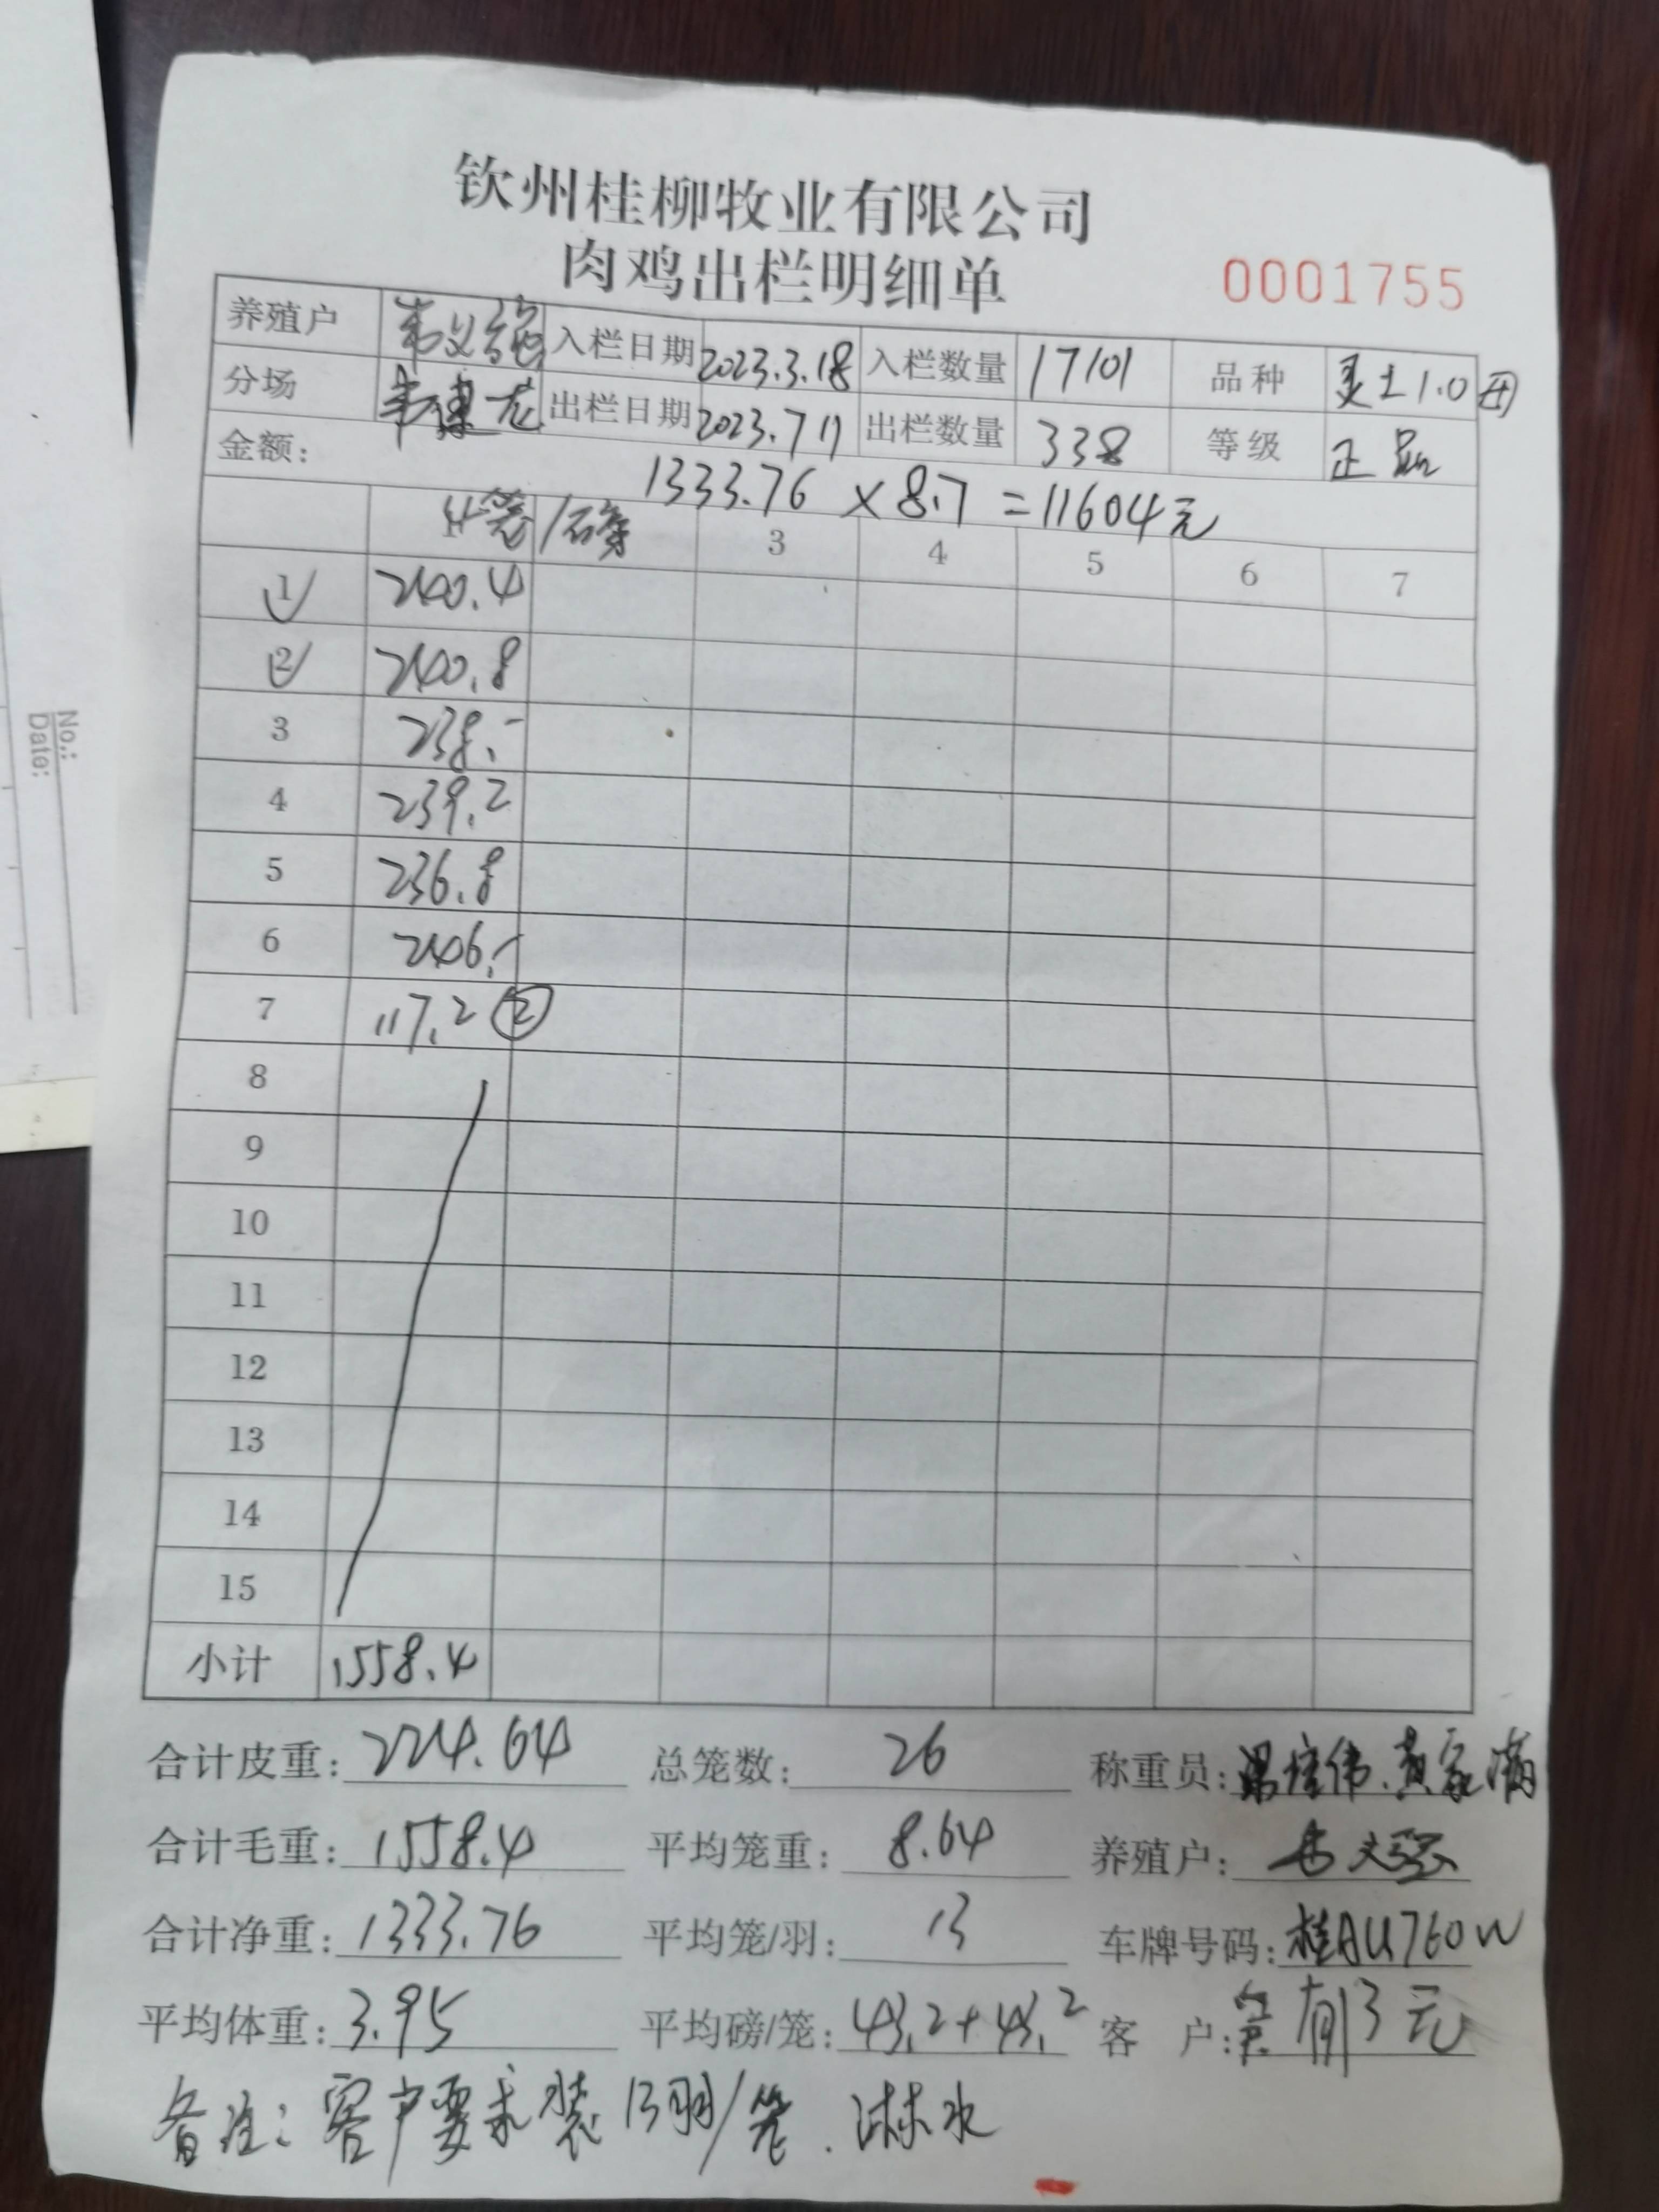 钦州桂柳牧业有限公司
肉鸡出栏明细单
0001755
养殖户 入栏日期 2023.3.18 入栏数量 17101 品种 灵土1.0
分场 出栏日期 2023.7 11 出栏数量 338 等级 正品
金额: 1333.76 × 8.7 = 11604元
笼/磅 3 4 5 6 7
1 240.4
2 240.8
3 238.-
4 239.2
5 236.8
6 246.-
7 117.2 ②
8
9
10
11
12
13
14
15
小计 1558.4
合计皮重: 224.64 总笼数: 26 称重员:
合计毛重: 1558.4 平均笼重: 8.64 养殖户:
合计净重: 1333.76 平均笼/羽: 13 车牌号码: 桂AU760W
平均体重: 3.95 平均磅/笼: 43.2+43.2 客 户:
备注: 客户要求装13羽/笼.淋水
No.:
Date: